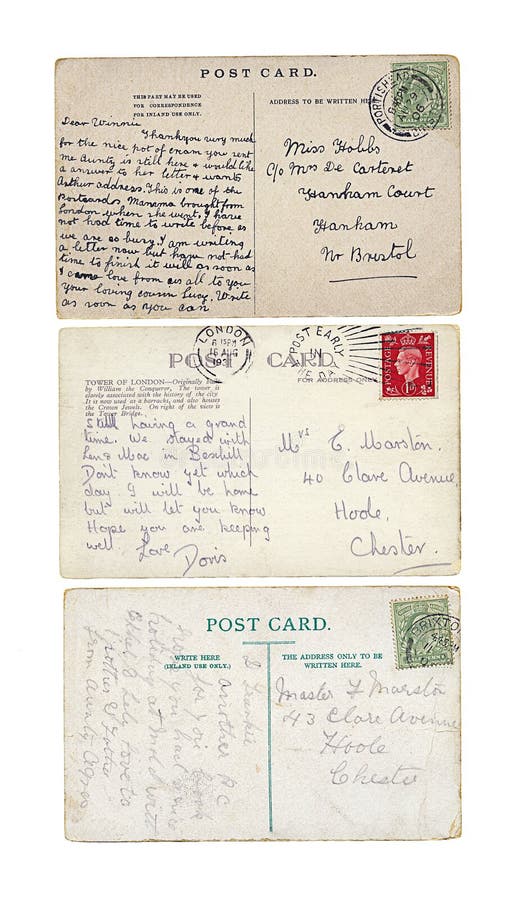 POST CARD.
THIS PART MAY BE USED
FOR CORRESPONDENCE
FOR INLAND USE ONLY.
ADDRESS TO BE WRITTEN HERE
PORTISHEAD
Dear Winnie
Thankyou very much
for the nice pot of cream you sent
me Aunty is still here & would like
a answer to her letter & wants
Arthur address. This is one of the
Postcards, Mamma brought from
London when she went. I have
not had time to write before as
we are so busy. I am writing
a letter now but have not had
time to finish it will as soon as
I love from us all to you
your loving cousin Lucy. Write
as soon as you can
Miss Hobbs
C/o Mrs De Carteret
Hanham Court
Hanham
Nr Bristol
POST CARD
LONDON
16 AUG
193
POST EARLY
IN
POSTAGE
REVENUE
TOWER OF LONDON—Originally built
by William the Conqueror. The tower is
closely associated with the history of the city
It is now used as a barracks, and also houses
the Crown Jewels. On right of the view is
the Tower Bridge.
FOR ADDRESS ONLY
Still having a grand
time. We stayed with
Len & Mac in Bexhill
Don't know yet which
day I will be home
but will let you know
Hope you are keeping
well. Love
Doris
Mrs E. Marston.
40 Clare Avenue
Hoole,
Chester.
POST CARD.
WRITE HERE
(INLAND USE ONLY.)
THE ADDRESS ONLY TO BE
WRITTEN HERE.
BRIXTON
D Frankie
another P.C
for your book
you had a nice
holiday at
love to
Mother & Father
from Aunty Agnes
Master F Marston
43 Clare Avenue
Hoole
Chester